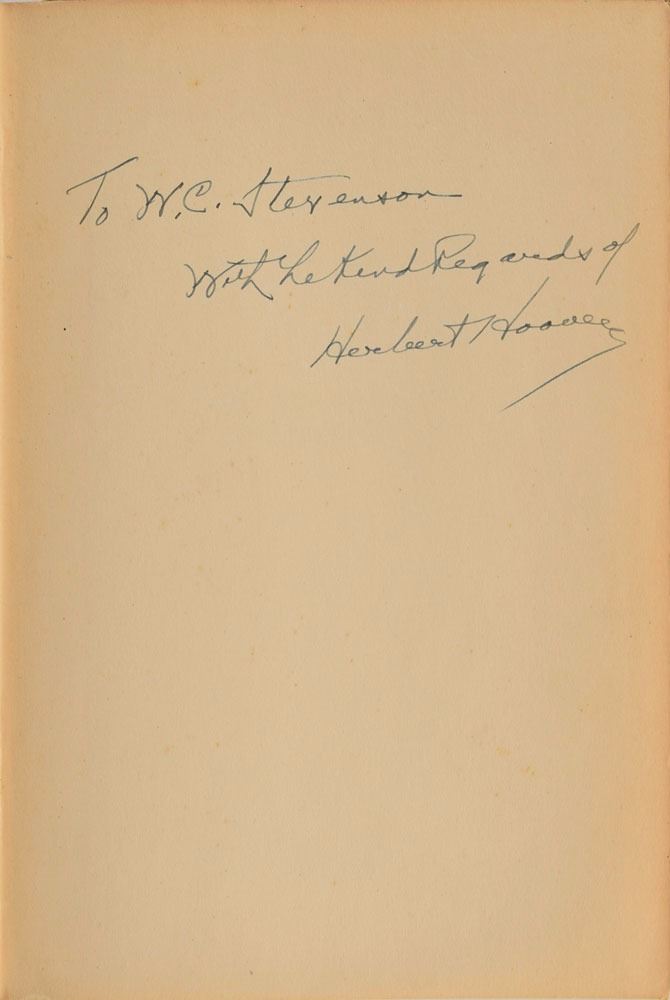 To W.C. Stevenson
With the Kind Regards of
Herbert Hoover